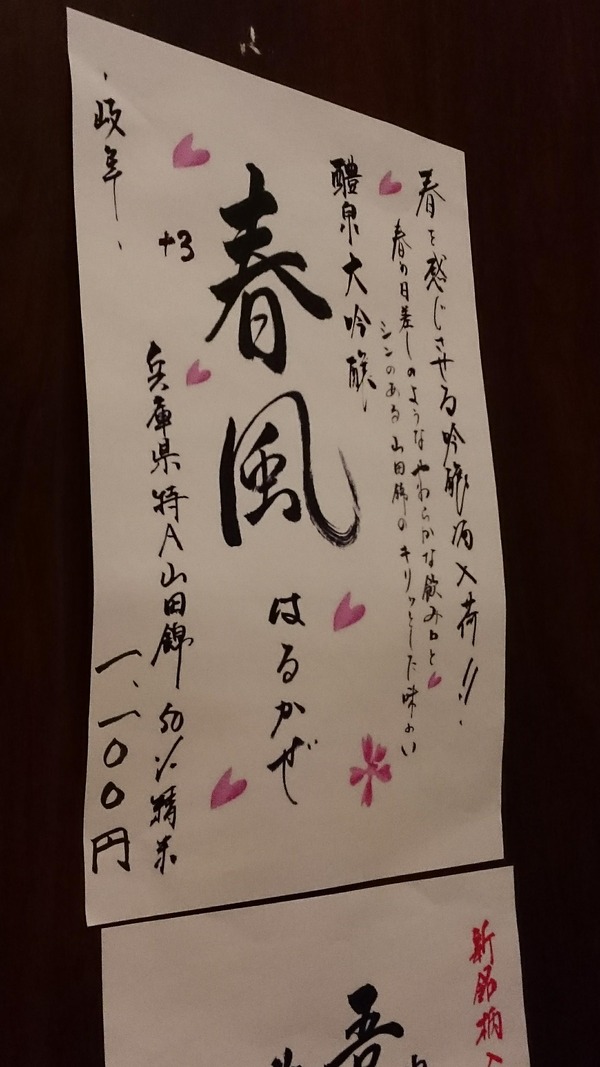 春を感じさせる吟醸酒入荷!!
春の日差しのようなやわらかな飲み口と
シンのある山田錦のキリッとした味わい
醴泉大吟醸
春風
はるかぜ
+3
兵庫県特A山田錦50%精米
一、一〇〇円
新銘柄入
吾